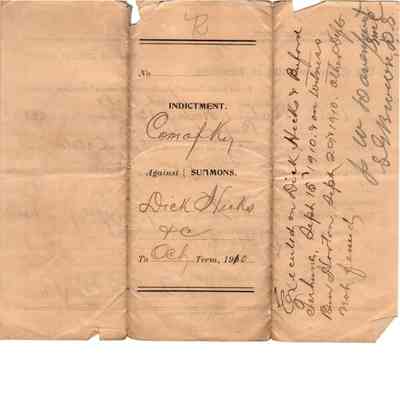 No
INDICTMENT.
Com of Ky.
Against } SUMMONS.
Dick Hicks
&c
To Oct Term, 1910
Executed on Dick Hicks & Buford
Terhune, Sept 15th 1910. & on witness
Ben Horton Sept 20th 1910. Other Deft
not found
J W Davenport
By
D.S.